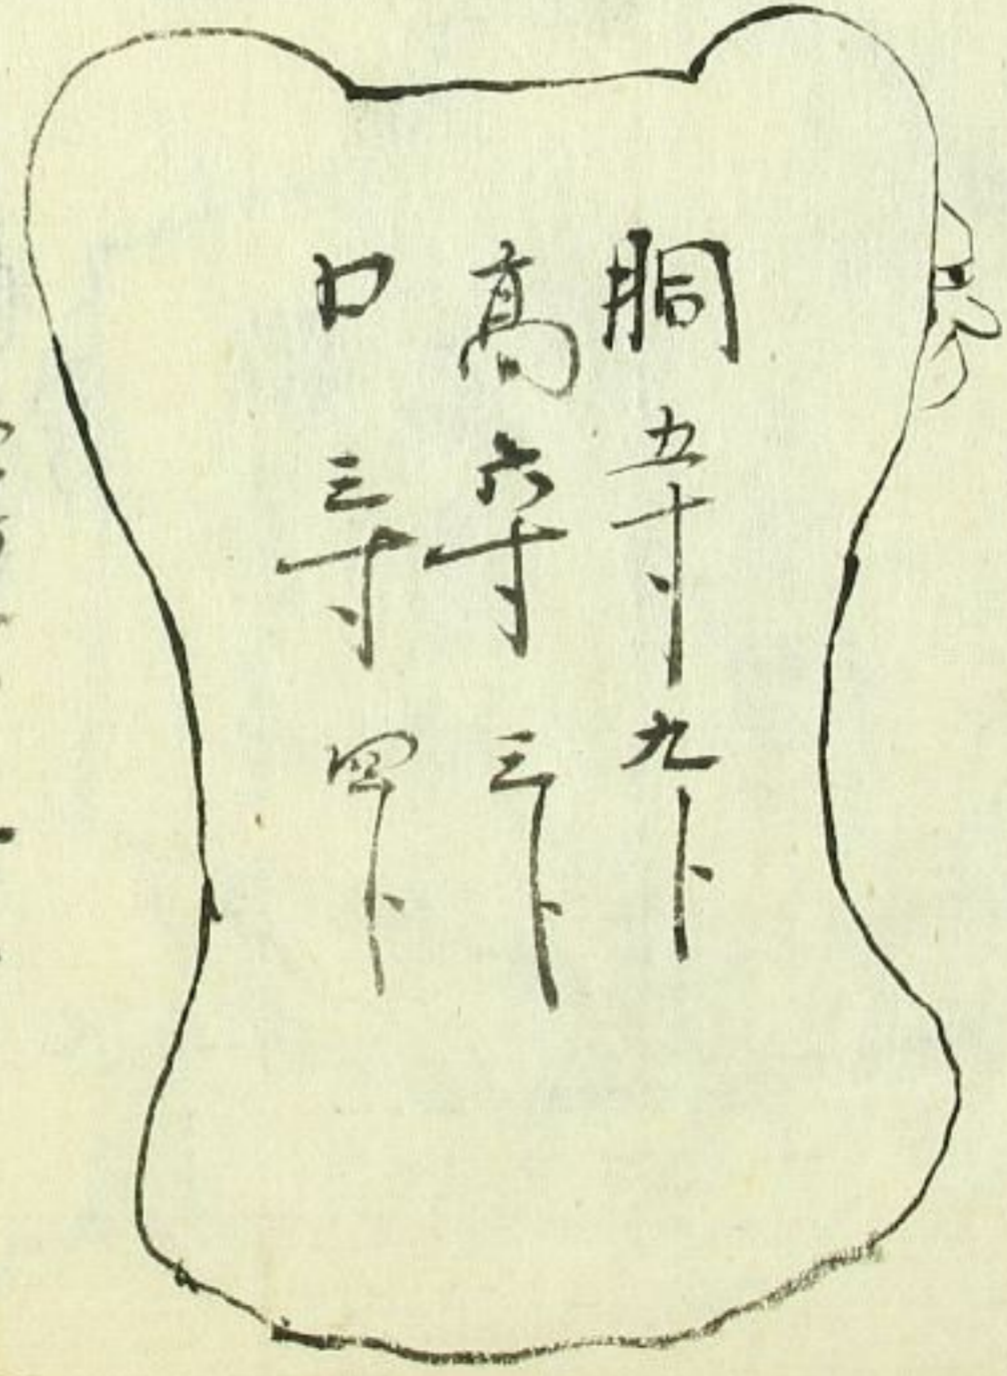 胴五寸九卜
高六寸三卜
口三寸四卜